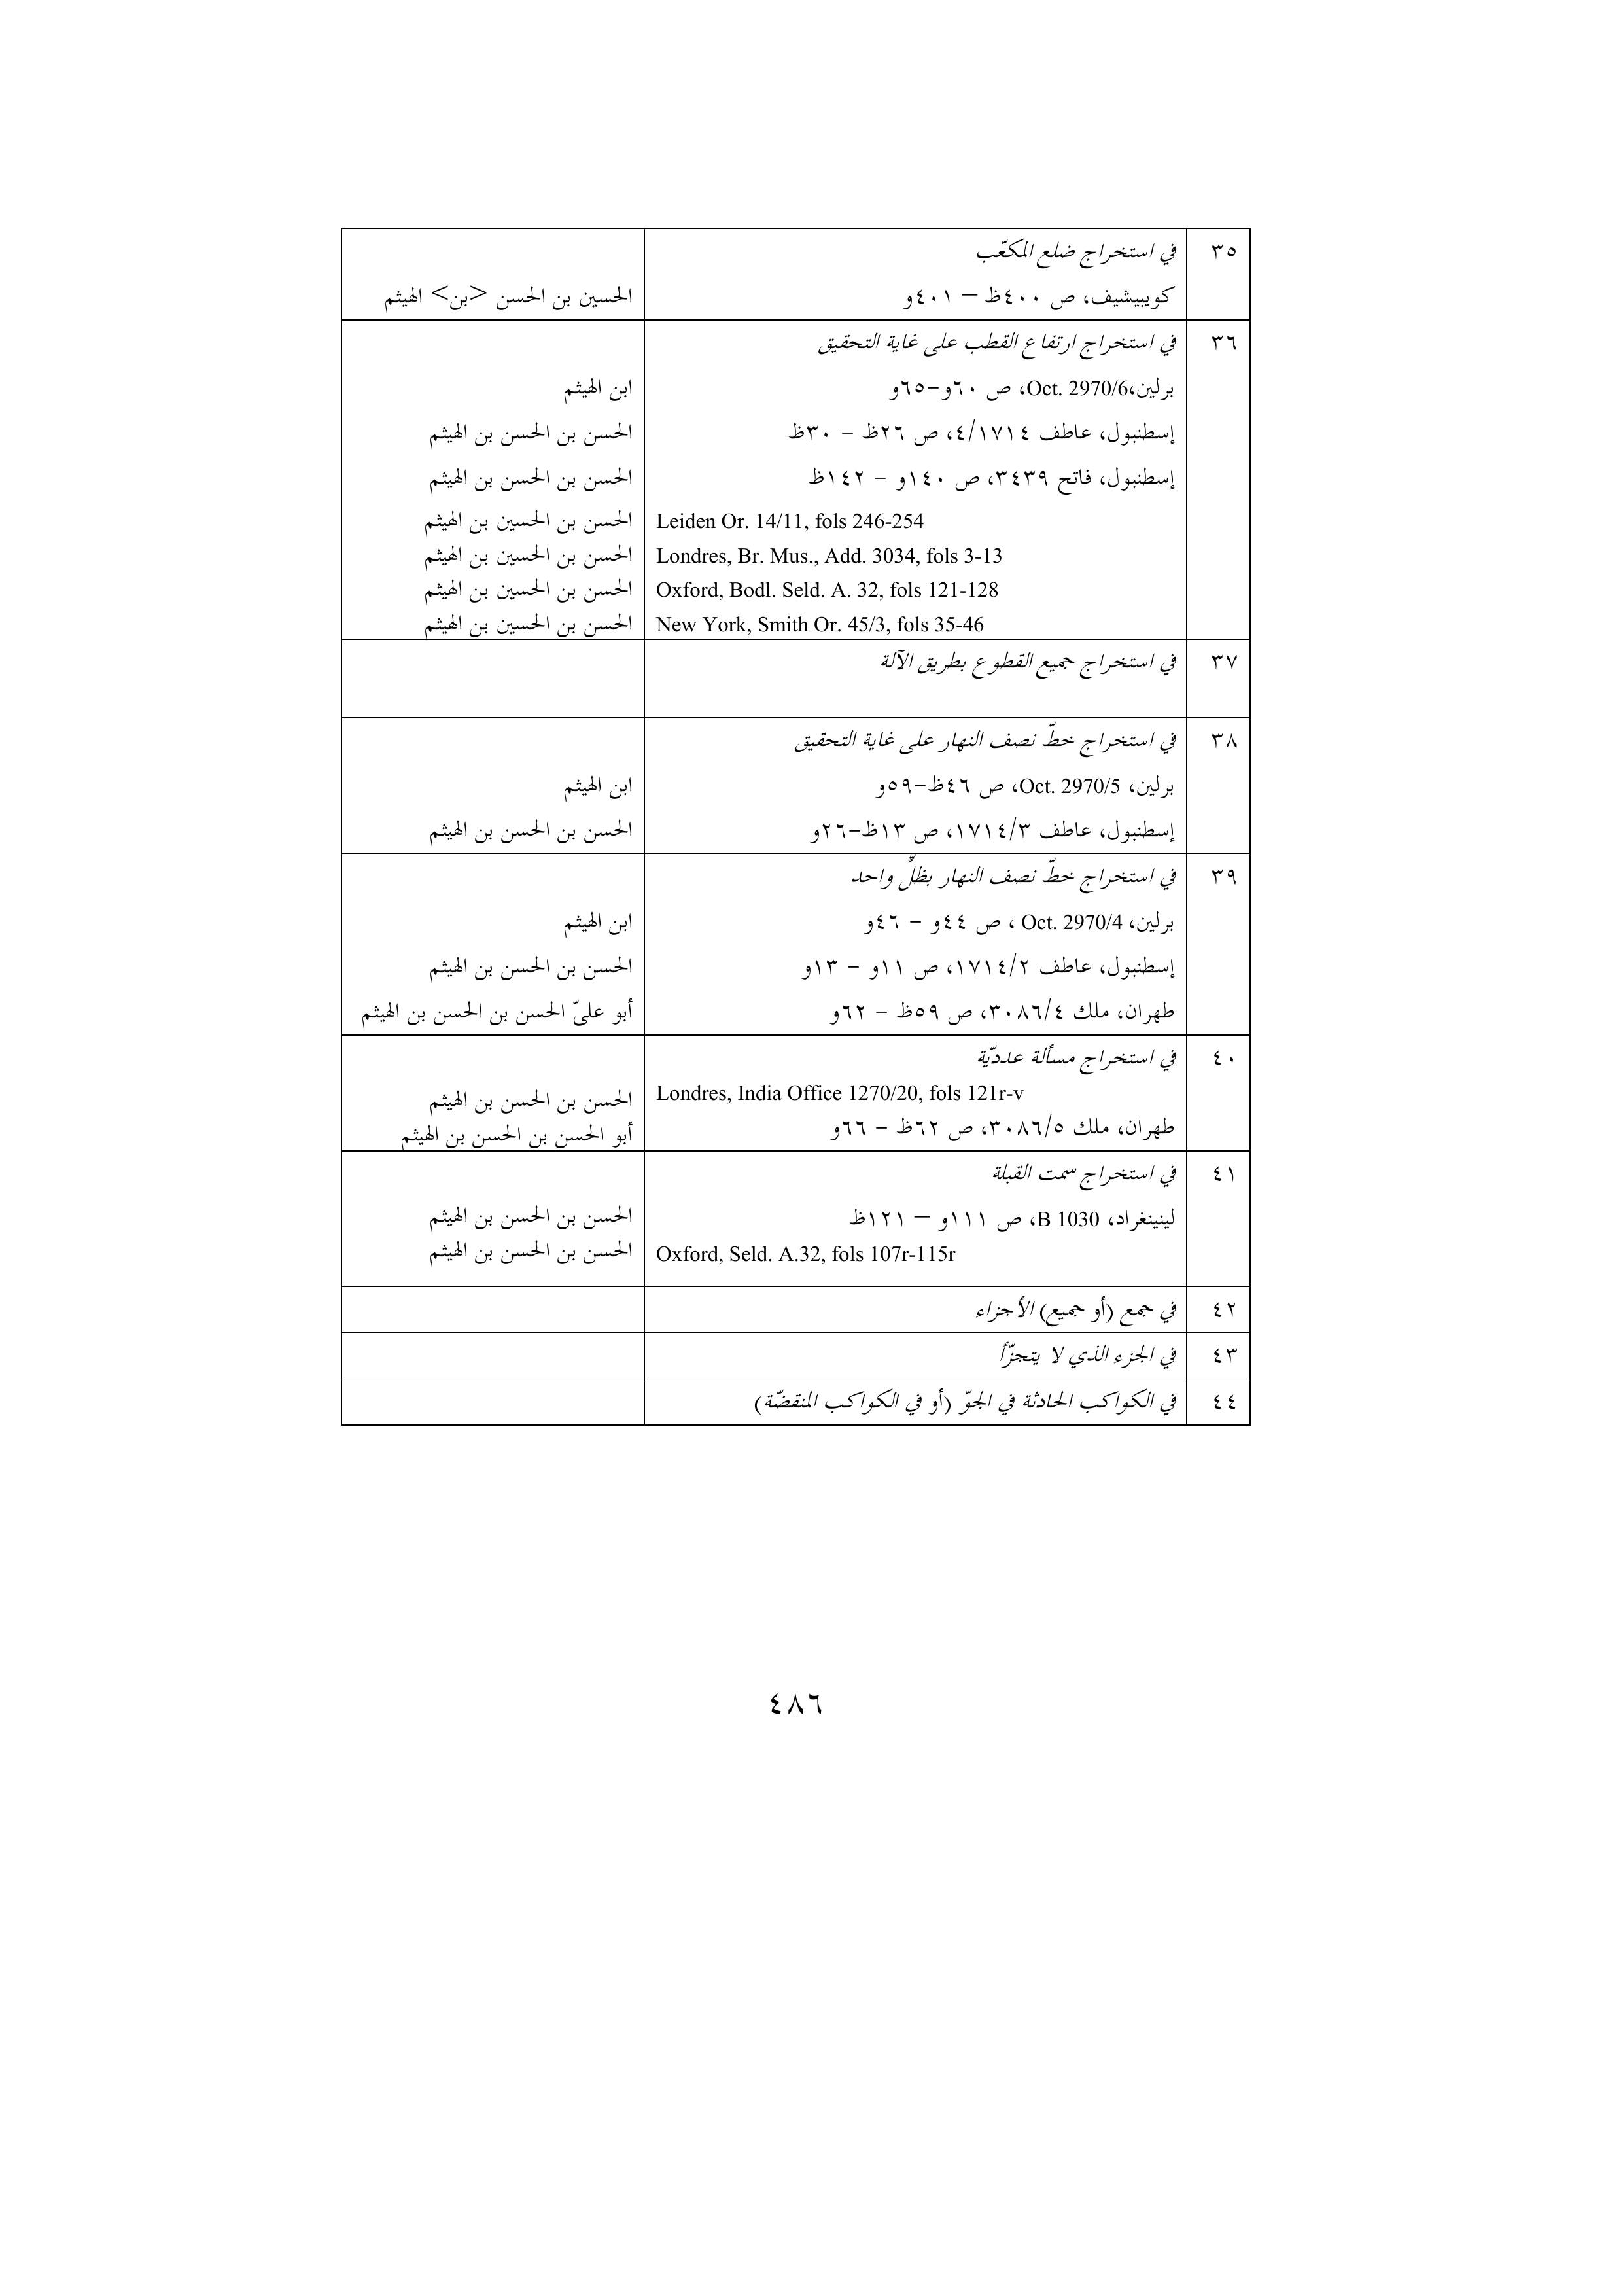 ٣٥ في استخراج ضلع المكعّب
كويبيشيف، ص ٤٠٠ظ – ٤٠١و الحسين بن الحسن <بن> الهيثم
٣٦ في استخراج ارتفاع القطب على غاية التحقيق
برلين،Oct. 2970/6، ص ٦٠و-٦٥و ابن الهيثم
إسطنبول، عاطف ٤/١٧١٤، ص ٢٦ظ - ٣٠ظ الحسن بن الحسن بن الهيثم
إسطنبول، فاتح ٣٤٣٩، ص ١٤٠و - ١٤٢ظ الحسن بن الحسن بن الهيثم
Leiden Or. 14/11, fols 246-254 الحسن بن الحسين بن الهيثم
Londres, Br. Mus., Add. 3034, fols 3-13 الحسن بن الحسين بن الهيثم
Oxford, Bodl. Seld. A. 32, fols 121-128 الحسن بن الحسين بن الهيثم
New York, Smith Or. 45/3, fols 35-46 الحسن بن الحسين بن الهيثم
٣٧ في استخراج جميع القطوع بطريق الآلة
٣٨ في استخراج خطّ نصف النهار على غاية التحقيق
برلين، Oct. 2970/5، ص ٤٦ظ-٥٩و ابن الهيثم
إسطنبول، عاطف ١٧١٤/٣، ص ١٣ظ-٢٦و الحسن بن الحسن بن الهيثم
٣٩ في استخراج خطّ نصف النهار بظلٍّ واحد
برلين، Oct. 2970/4 ، ص ٤٤و - ٤٦و ابن الهيثم
إسطنبول، عاطف ١٧١٤/٢، ص ١١و - ١٣و الحسن بن الحسن بن الهيثم
طهران، ملك ٣٠٨٦/٤، ص ٥٩ظ - ٦٢و أبو عليّ الحسن بن الحسن بن الهيثم
٤٠ في استخراج مسألة عدديّة
Londres, India Office 1270/20, fols 121r-v الحسن بن الحسن بن الهيثم
طهران، ملك ٣٠٨٦/٥، ص ٦٢ظ - ٦٦و أبو الحسن بن الحسن بن الهيثم
٤١ في استخراج سمت القبلة
لينينغراد، B 1030، ص ١١١و – ١٢١ظ الحسن بن الحسن بن الهيثم
Oxford, Seld. A.32, fols 107r-115r الحسن بن الحسن بن الهيثم
٤٢ في جمع (أو جميع) الأجزاء
٤٣ في الجزء الذي لا يتجزّأ
٤٤ في الكواكب الحادثة في الجوّ (أو في الكواكب المنقضّة)
٤٨٦